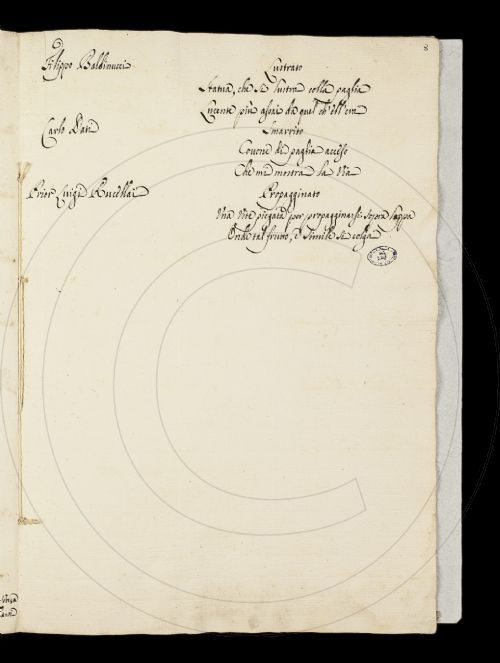 8
Filippo Baldinucci
Lustrato
Statua, che si lustra colla paglia
Lucente più assai di quel ch'ell'era
Carlo Dati
Smarrito
Covone di paglia acceso
Che mi mostra la Via
Prior Luigi Rucellai
Propagginato
Una Vite piegata per propagginarsi sopra
Onde tal frutto, e simile si colga